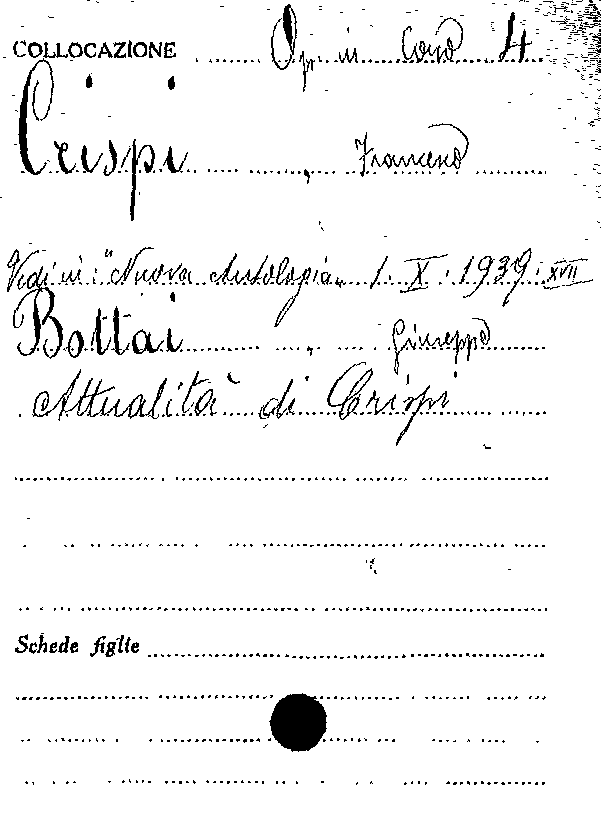 COLLOCAZIONE Op. in Cons 4
Crispi, Francesco
Vedi in: "Nuova Antologia" 1. X. 1939. XVII
Bottai, Giuseppe
Attualità di Crispi
Schede figlie